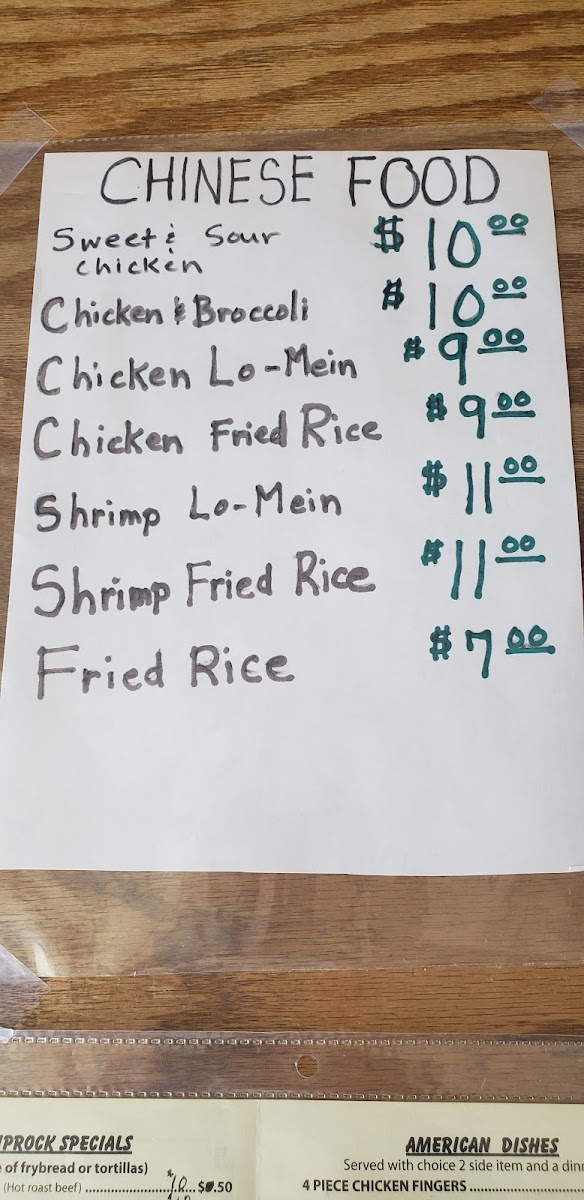 CHINESE FOOD
Sweet & Sour $10.00
chicken
Chicken & Broccoli $10.00
Chicken Lo-Mein $9.00
Chicken Fried Rice $9.00
Shrimp Lo-Mein $11.00
Shrimp Fried Rice $11.00
Fried Rice $7.00
PROCK SPECIALS
e of frybread or tortillas)
(Hot roast beef)
AMERICAN DISHES
Served with choice 2 side item and a din
4 PIECE CHICKEN FINGERS